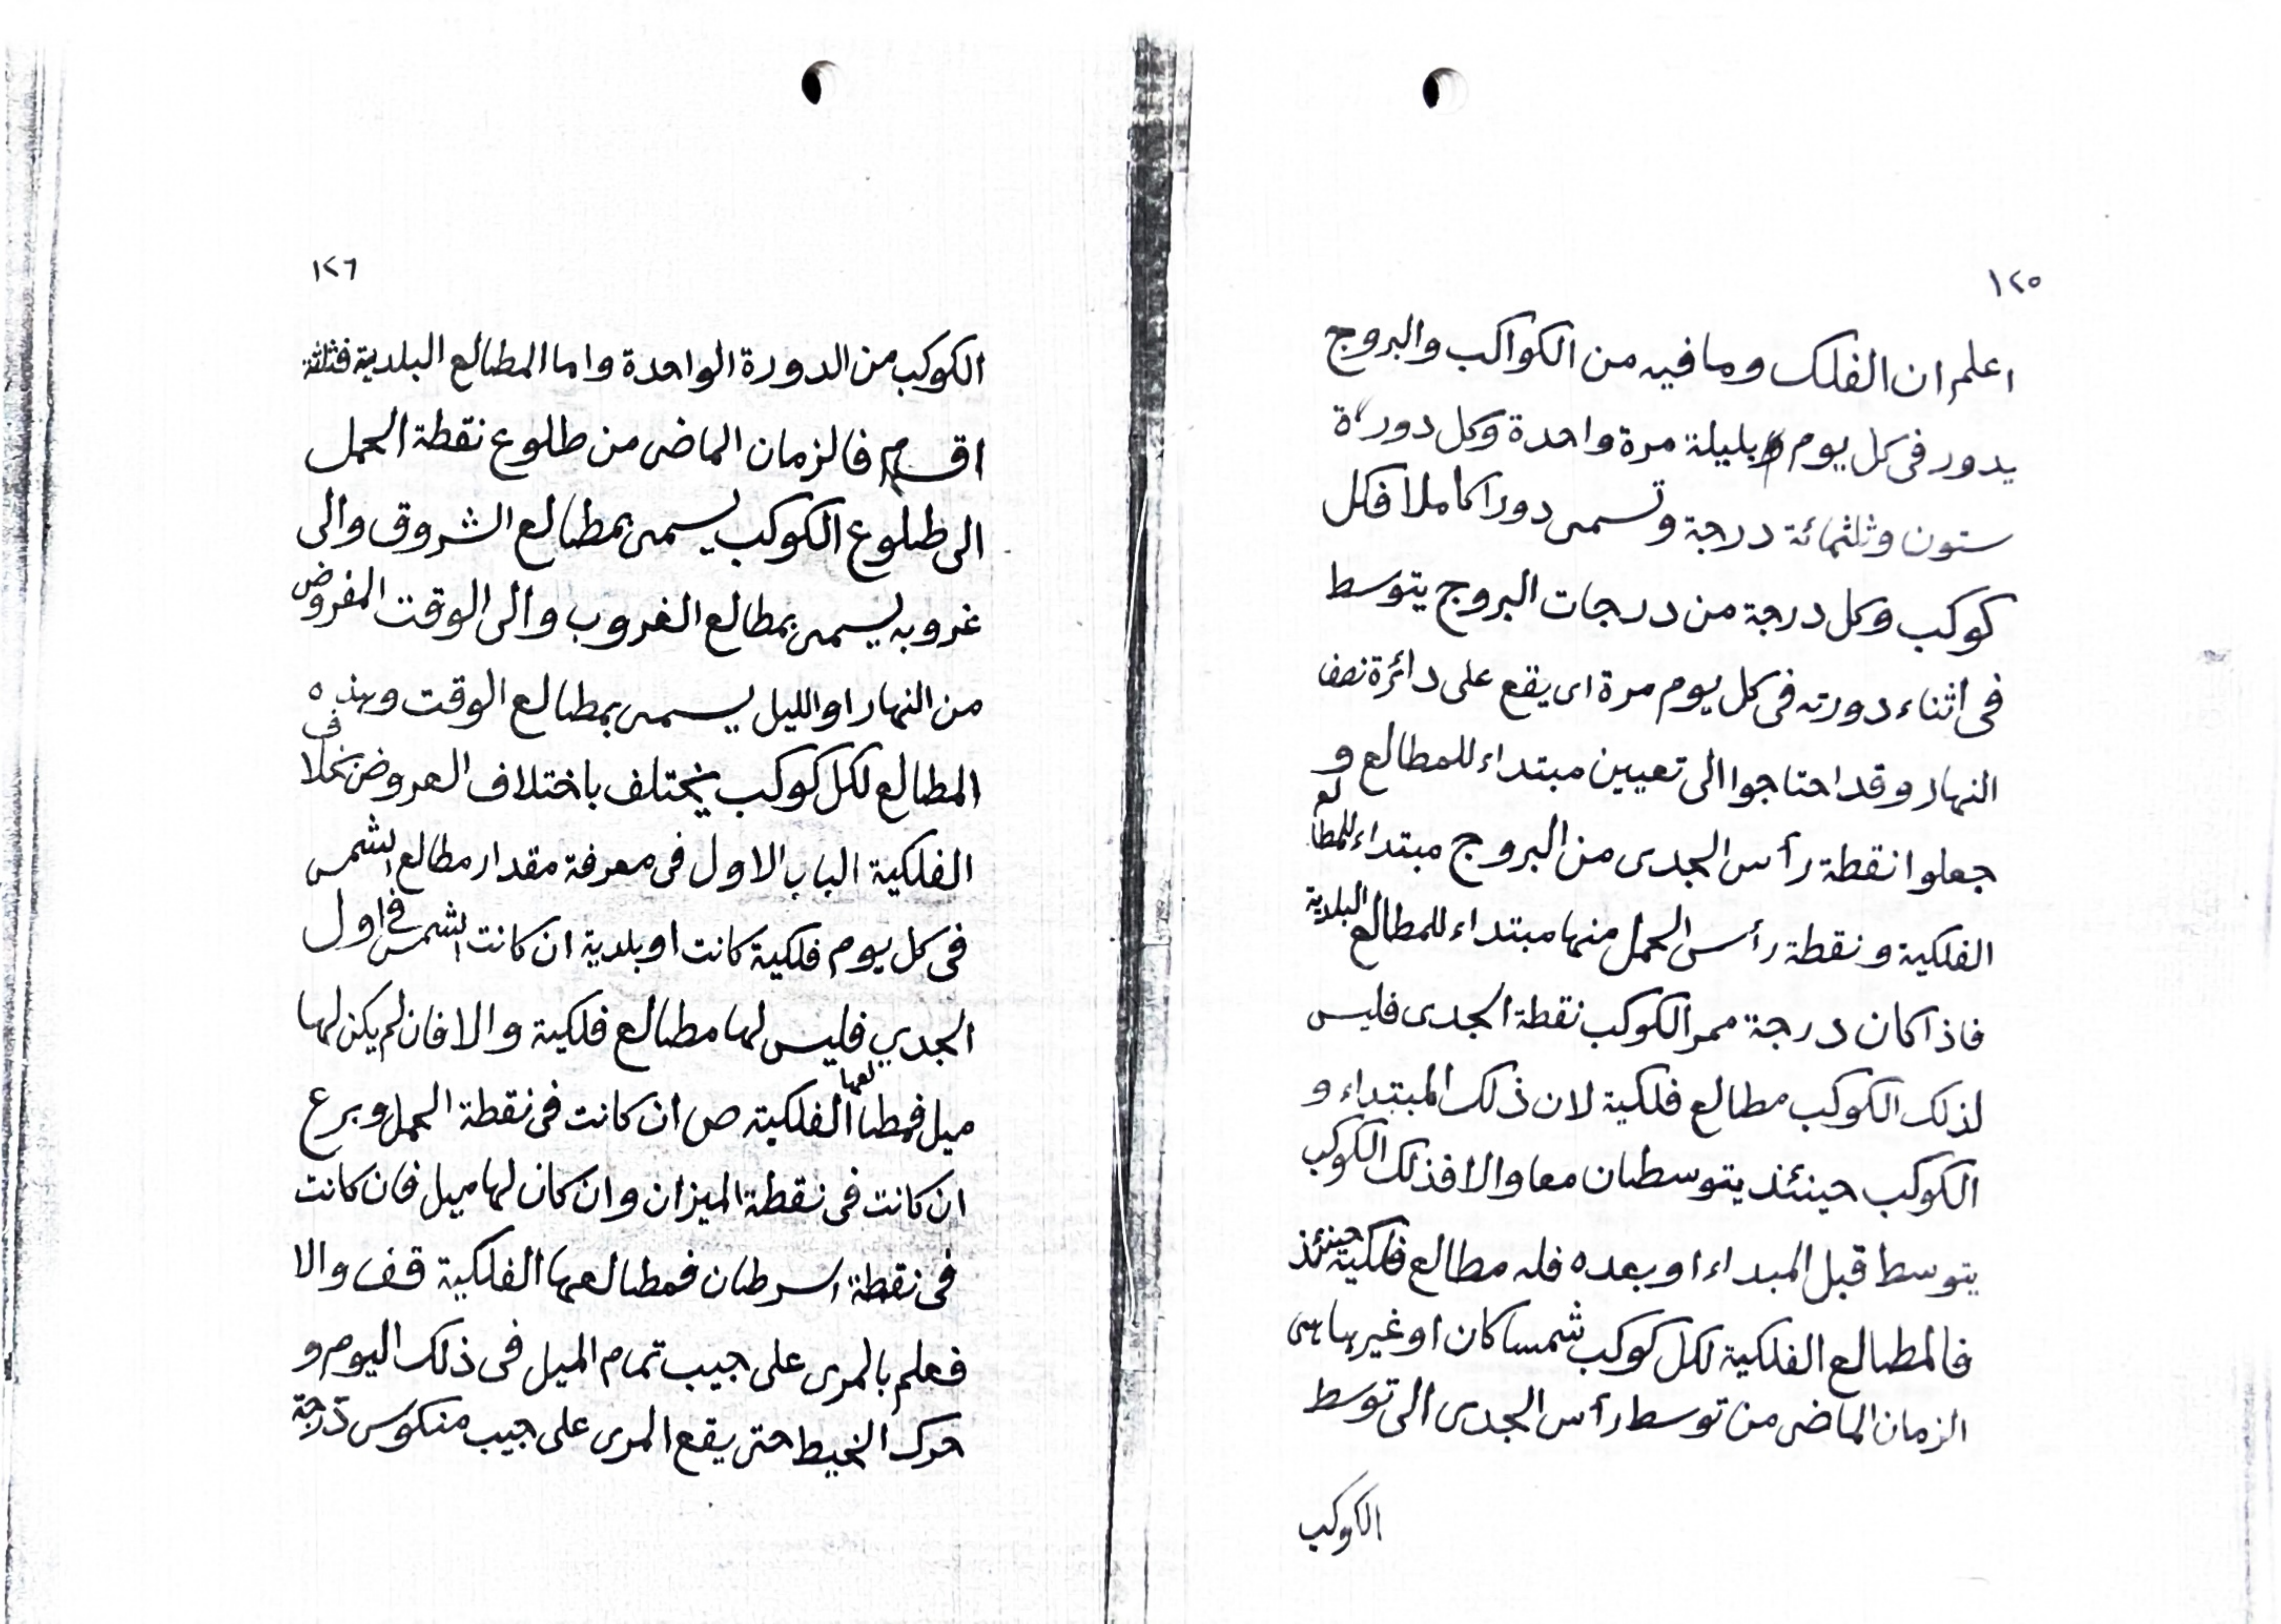 ١٢٥
اعلم ان الفلك وما فيه من الكواكب والبروج
يدور فى كل يوم بليلة مرة واحدة وكل دورة
ستون وثلثمائة درجة وتسمى دورا كاملا فكل
كوكب وكل درجة من درجات البروج يتوسط
فى اثناء دورته فى كل يوم مرة اى يقع على دائرة نصف
النهار وقد احتاجوا الى تعيين مبتداء للمطالع و
جعلوا نقطة رأس الجدى من البروج مبتداء للمطالع
الفلكية ونقطة رأس الحمل منها مبتداء للمطالع البلدية
فاذا كان درجة ممر الكوكب نقطة الجدى فليس
لذلك الكوكب مطالع فلكية لان ذلك المبتداء و
الكوكب حينئذ يتوسطان معا والا فذلك الكوكب
يتوسط قبل المبداء او بعده فله مطالع فلكية حينئذ
فالمطالع الفلكية لكل كوكب شمسا كان او غيرها هى
الزمان الماضى من توسط رأس الجدى الى توسط
الكوكب
١٢٦
الكوكب من الدورة الواحدة واما المطالع البلدية فثلثة
اقسام فالزمان الماضى من طلوع نقطة الحمل
الى طلوع الكوكب يسمى بمطالع الشروق والى
غروبه يسمى بمطالع الغروب والى الوقت المفروض
من النهار او الليل يسمى بمطالع الوقت وهذه
المطالع لكل كوكب يختلف باختلاف العروض بخلاف
الفلكية الباب الاول فى معرفة مقدار مطالع الشمس
فى كل يوم فلكية كانت او بلدية ان كانت الشمس فى اول
الجدي فليس لها مطالع فلكية والا فان لم يكن لها
ميل فمطالعها الفلكية ص ان كانت فى نقطة الحمل و رع
ان كانت فى نقطة الميزان وان كان لها ميل فان كانت
فى نقطة السرطان فمطالعها الفلكية قف والا
فعلم بالمرى على جيب تمام الميل فى ذلك اليوم و
حرك الخيط حتى يقع المرى على جيب منكوس درجة